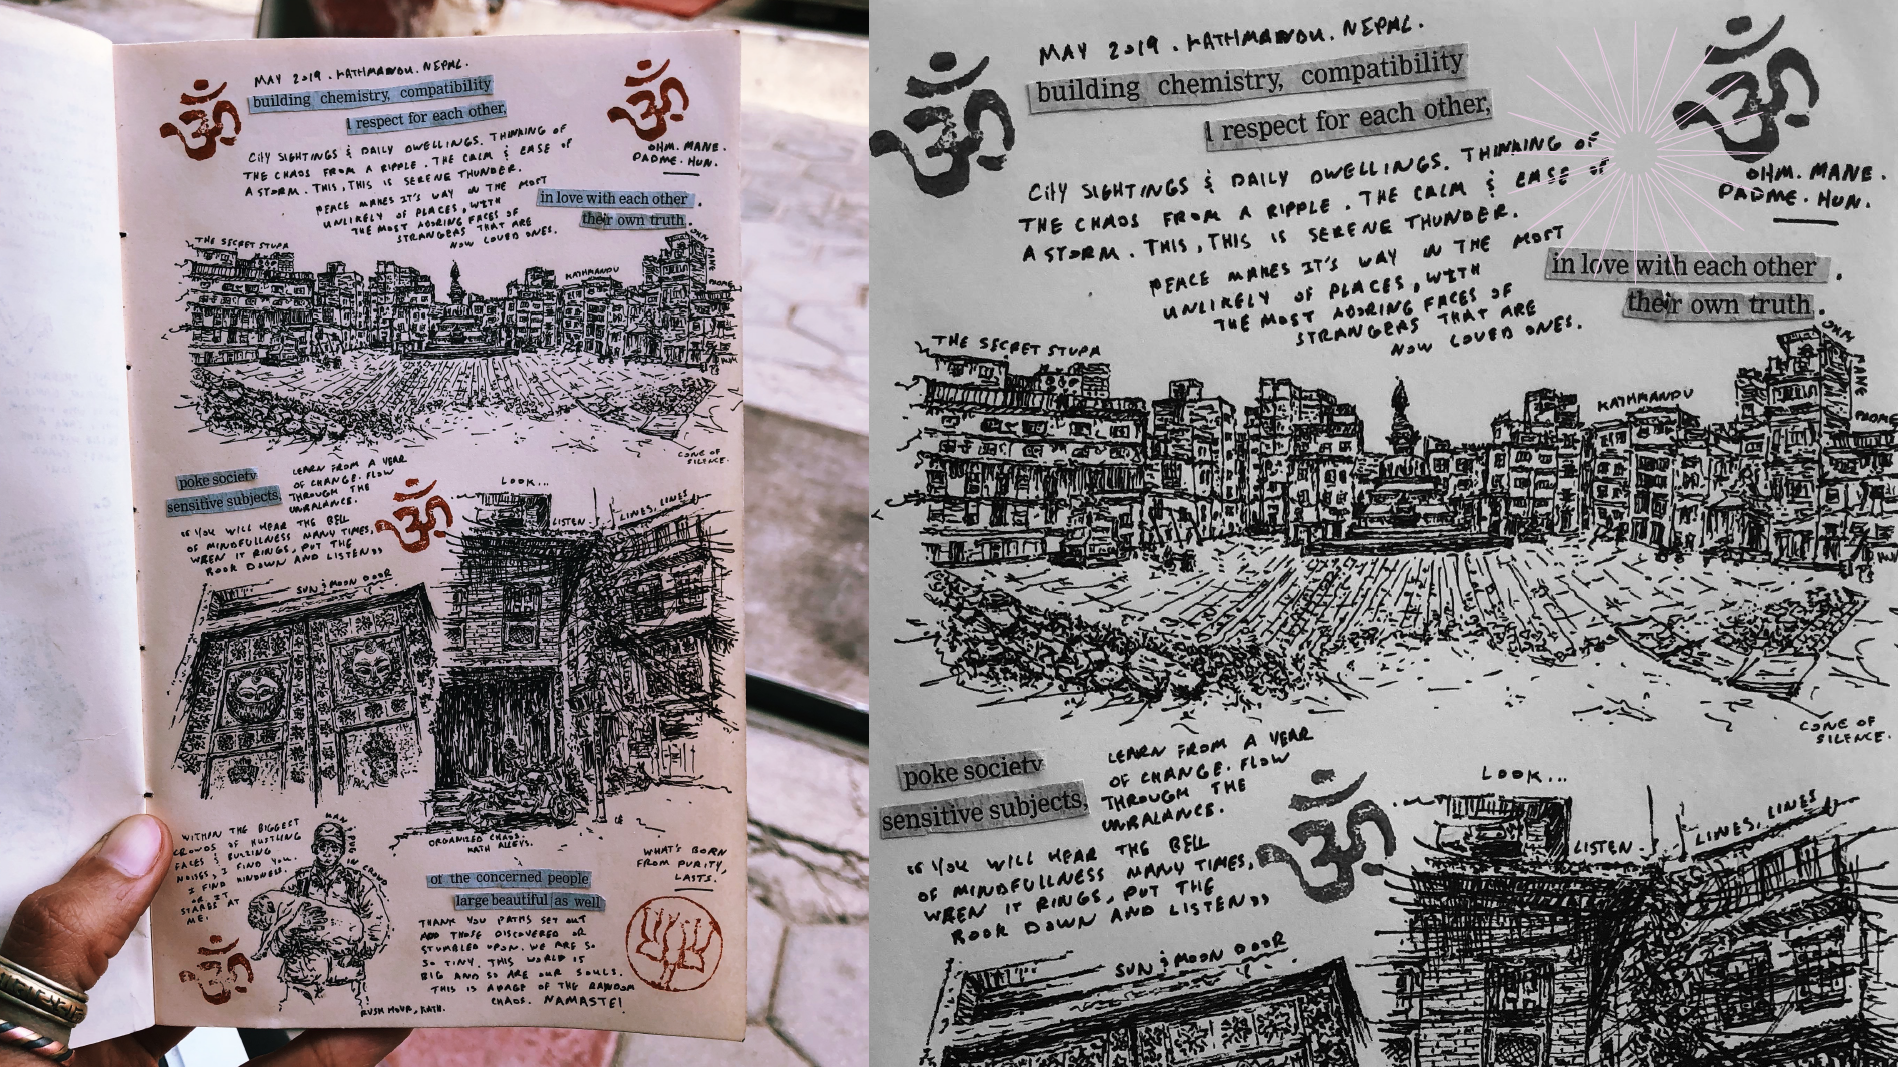 MAY 2019. KATHMANDU. NEPAL.
building chemistry, compatibility
I respect for each other,
CITY SIGHTINGS & DAILY DWELLINGS. THINKING OF
THE CHAOS FROM A RIPPLE. THE CALM & EASE OF
A STORM. THIS, THIS IS SERENE THUNDER.
OHM. MANE.
PADME. HUN.
PEACE MAKES IT'S WAY IN THE MOST
UNLIKELY OF PLACES, WITH
THE MOST ADORING FACES OF
STRANGERS THAT ARE
NOW LOVED ONES.
in love with each other.
their own truth.
THE SECRET STUPA
KATHMANDU
OHM
MANE
PADME
HUN
CONE OF
SILENCE.
poke society
sensitive subjects,
LEARN FROM A YEAR
OF CHANGE. FLOW
THROUGH THE
UNBALANCE.
"YOU WILL HEAR THE BELL
OF MINDFULLNESS MANY TIMES,
WHEN IT RINGS, PUT THE
BOOK DOWN AND LISTEN"
ॐ
LOOK...
LISTEN
LINES, LINES
SUN & MOON DOOR
WITHIN THE BIGGEST
CROWDS OF HUSTLING
FACES & BUZZING
NOISES, I FIND YOU.
I FIND KINDNESS.
OR IT
STARES AT
ME.
MAN
IN CROWD
RUSH HOUR, KATH.
ORGANIZED CHAOS.
KATH ALLEYS.
of the concerned people
large beautiful as well
WHAT'S BORN
FROM PURITY,
LASTS.
THANK YOU PATHS SET OUT
AND THOSE DISCOVERED OR
STUMBLED UPON. WE ARE SO
SO TINY. THIS WORLD IS
BIG AND SO ARE OUR SOULS.
THIS IS A PAGE OF THE RANDOM
CHAOS. NAMASTE!
MAY 2019. KATHMANDU. NEPAL.
building chemistry, compatibility
I respect for each other,
CITY SIGHTINGS & DAILY DWELLINGS. THINKING OF
THE CHAOS FROM A RIPPLE. THE CALM & EASE OF
A STORM. THIS, THIS IS SERENE THUNDER.
OHM. MANE.
PADME. HUN.
PEACE MAKES IT'S WAY IN THE MOST
UNLIKELY OF PLACES, WITH
THE MOST ADORING FACES OF
STRANGERS THAT ARE
NOW LOVED ONES.
in love with each other.
their own truth.
THE SECRET STUPA
KATHMANDU
OHM
MANE
PADME
HUN
CONE OF
SILENCE.
poke society
sensitive subjects,
LEARN FROM A YEAR
OF CHANGE. FLOW
THROUGH THE
UNBALANCE.
"YOU WILL HEAR THE BELL
OF MINDFULLNESS MANY TIMES,
WHEN IT RINGS, PUT THE
BOOK DOWN AND LISTEN"
ॐ
LOOK...
LISTEN
LINES, LINES
SUN & MOON DOOR